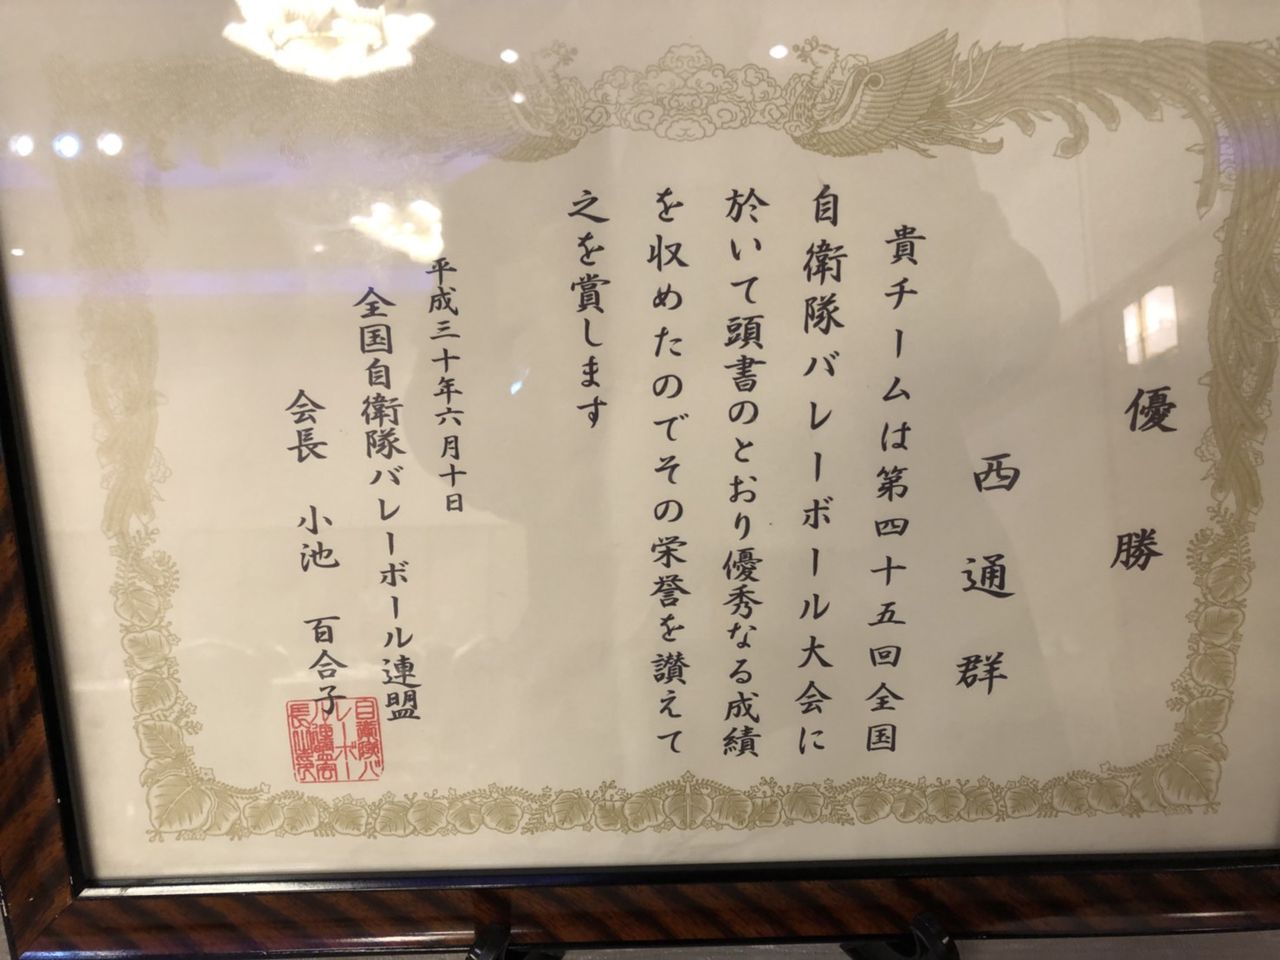 優勝
西通群
貴チームは第四十五回全国
自衛隊バレーボール大会に
於いて頭書のとおり優秀なる成績
を収めたのでその栄誉を讃えて
之を賞します
平成三十年六月十日
全国自衛隊バレーボール連盟
会長 小池 百合子